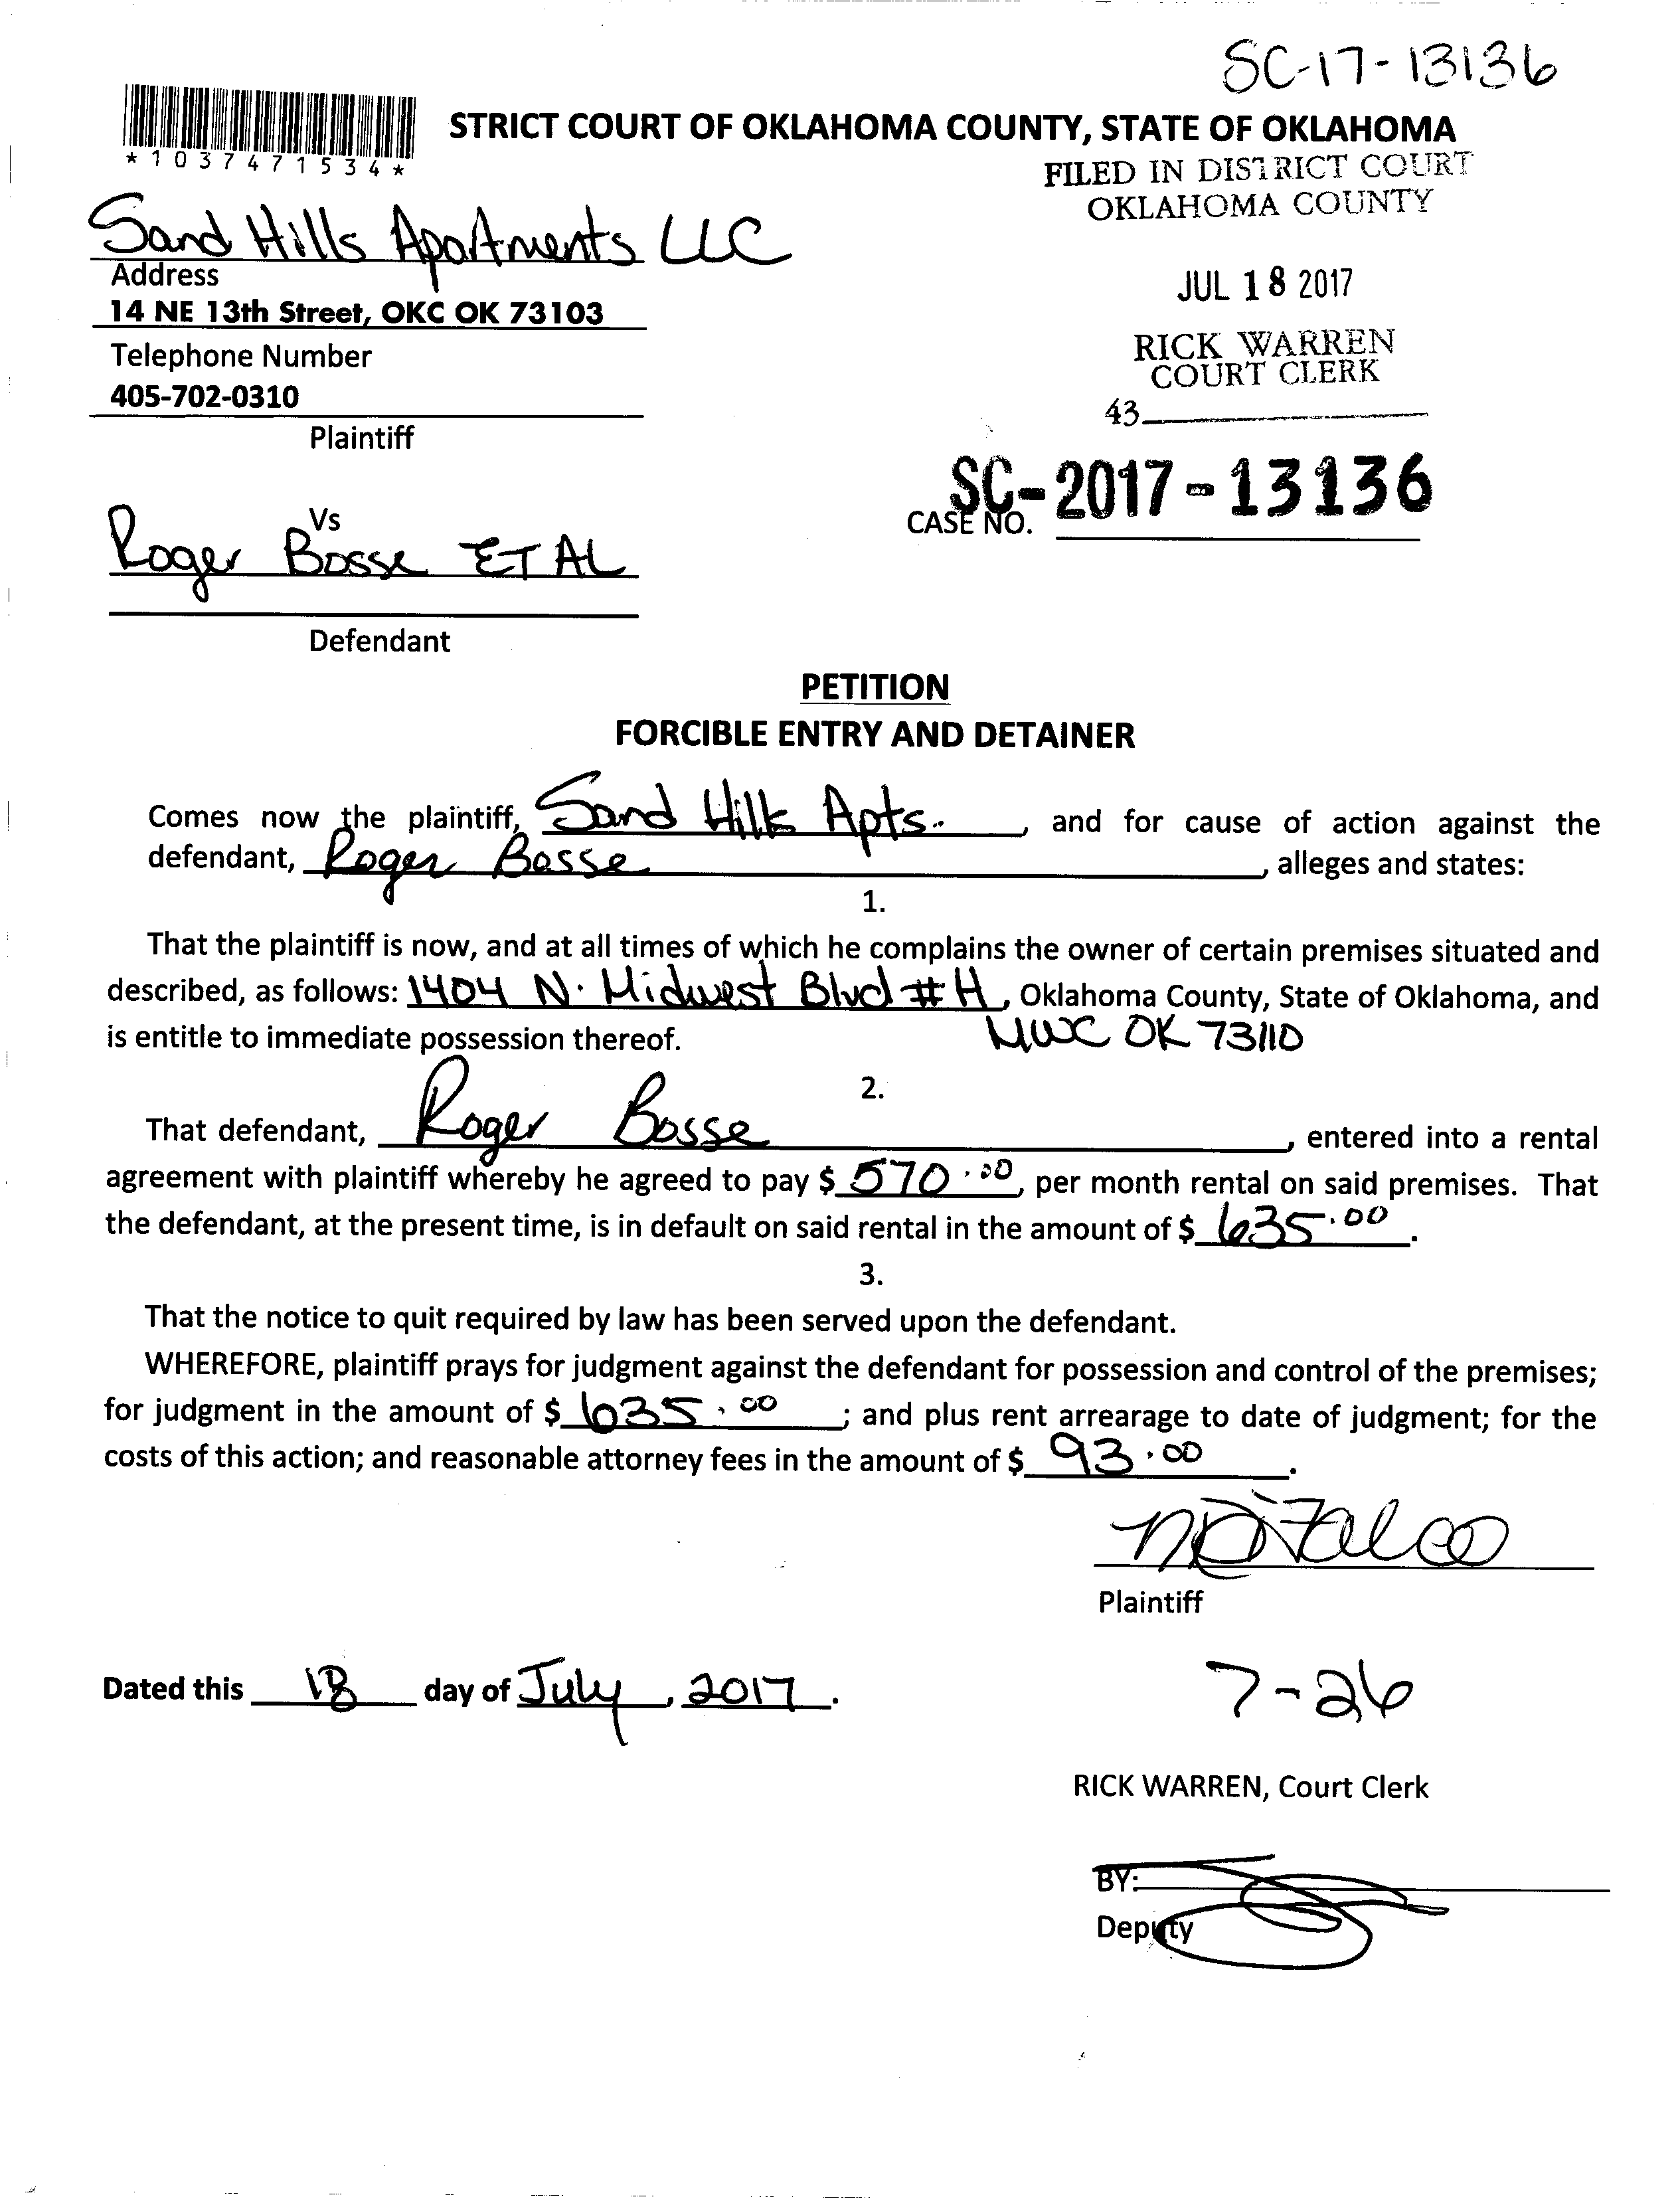 SC-17-13136
*1037471534*
STRICT COURT OF OKLAHOMA COUNTY, STATE OF OKLAHOMA
FILED IN DISTRICT COURT
OKLAHOMA COUNTY
Sand Hills Apartments LLC
Address
14 NE 13th Street, OKC OK 73103
JUL 18 2017
Telephone Number
405-702-0310
RICK WARREN
COURT CLERK
43
Plaintiff
SC-2017-13136
CASE NO.
Vs
Roger Bosse ET AL
Defendant
PETITION
FORCIBLE ENTRY AND DETAINER
Comes now the plaintiff, Sand Hills Apts., and for cause of action against the
defendant, Roger Bosse, alleges and states:
1.
That the plaintiff is now, and at all times of which he complains the owner of certain premises situated and
described, as follows: 1404 N. Midwest Blvd #H, Oklahoma County, State of Oklahoma, and
is entitle to immediate possession thereof. MWC OK 73110
2.
That defendant, Roger Bosse, entered into a rental
agreement with plaintiff whereby he agreed to pay $ 570.00, per month rental on said premises. That
the defendant, at the present time, is in default on said rental in the amount of $ 635.00.
3.
That the notice to quit required by law has been served upon the defendant.
WHEREFORE, plaintiff prays for judgment against the defendant for possession and control of the premises;
for judgment in the amount of $ 635.00; and plus rent arrearage to date of judgment; for the
costs of this action; and reasonable attorney fees in the amount of $ 93.00.
Plaintiff
Dated this 18 day of July, 2017.
7-26
RICK WARREN, Court Clerk
BY:
Deputy